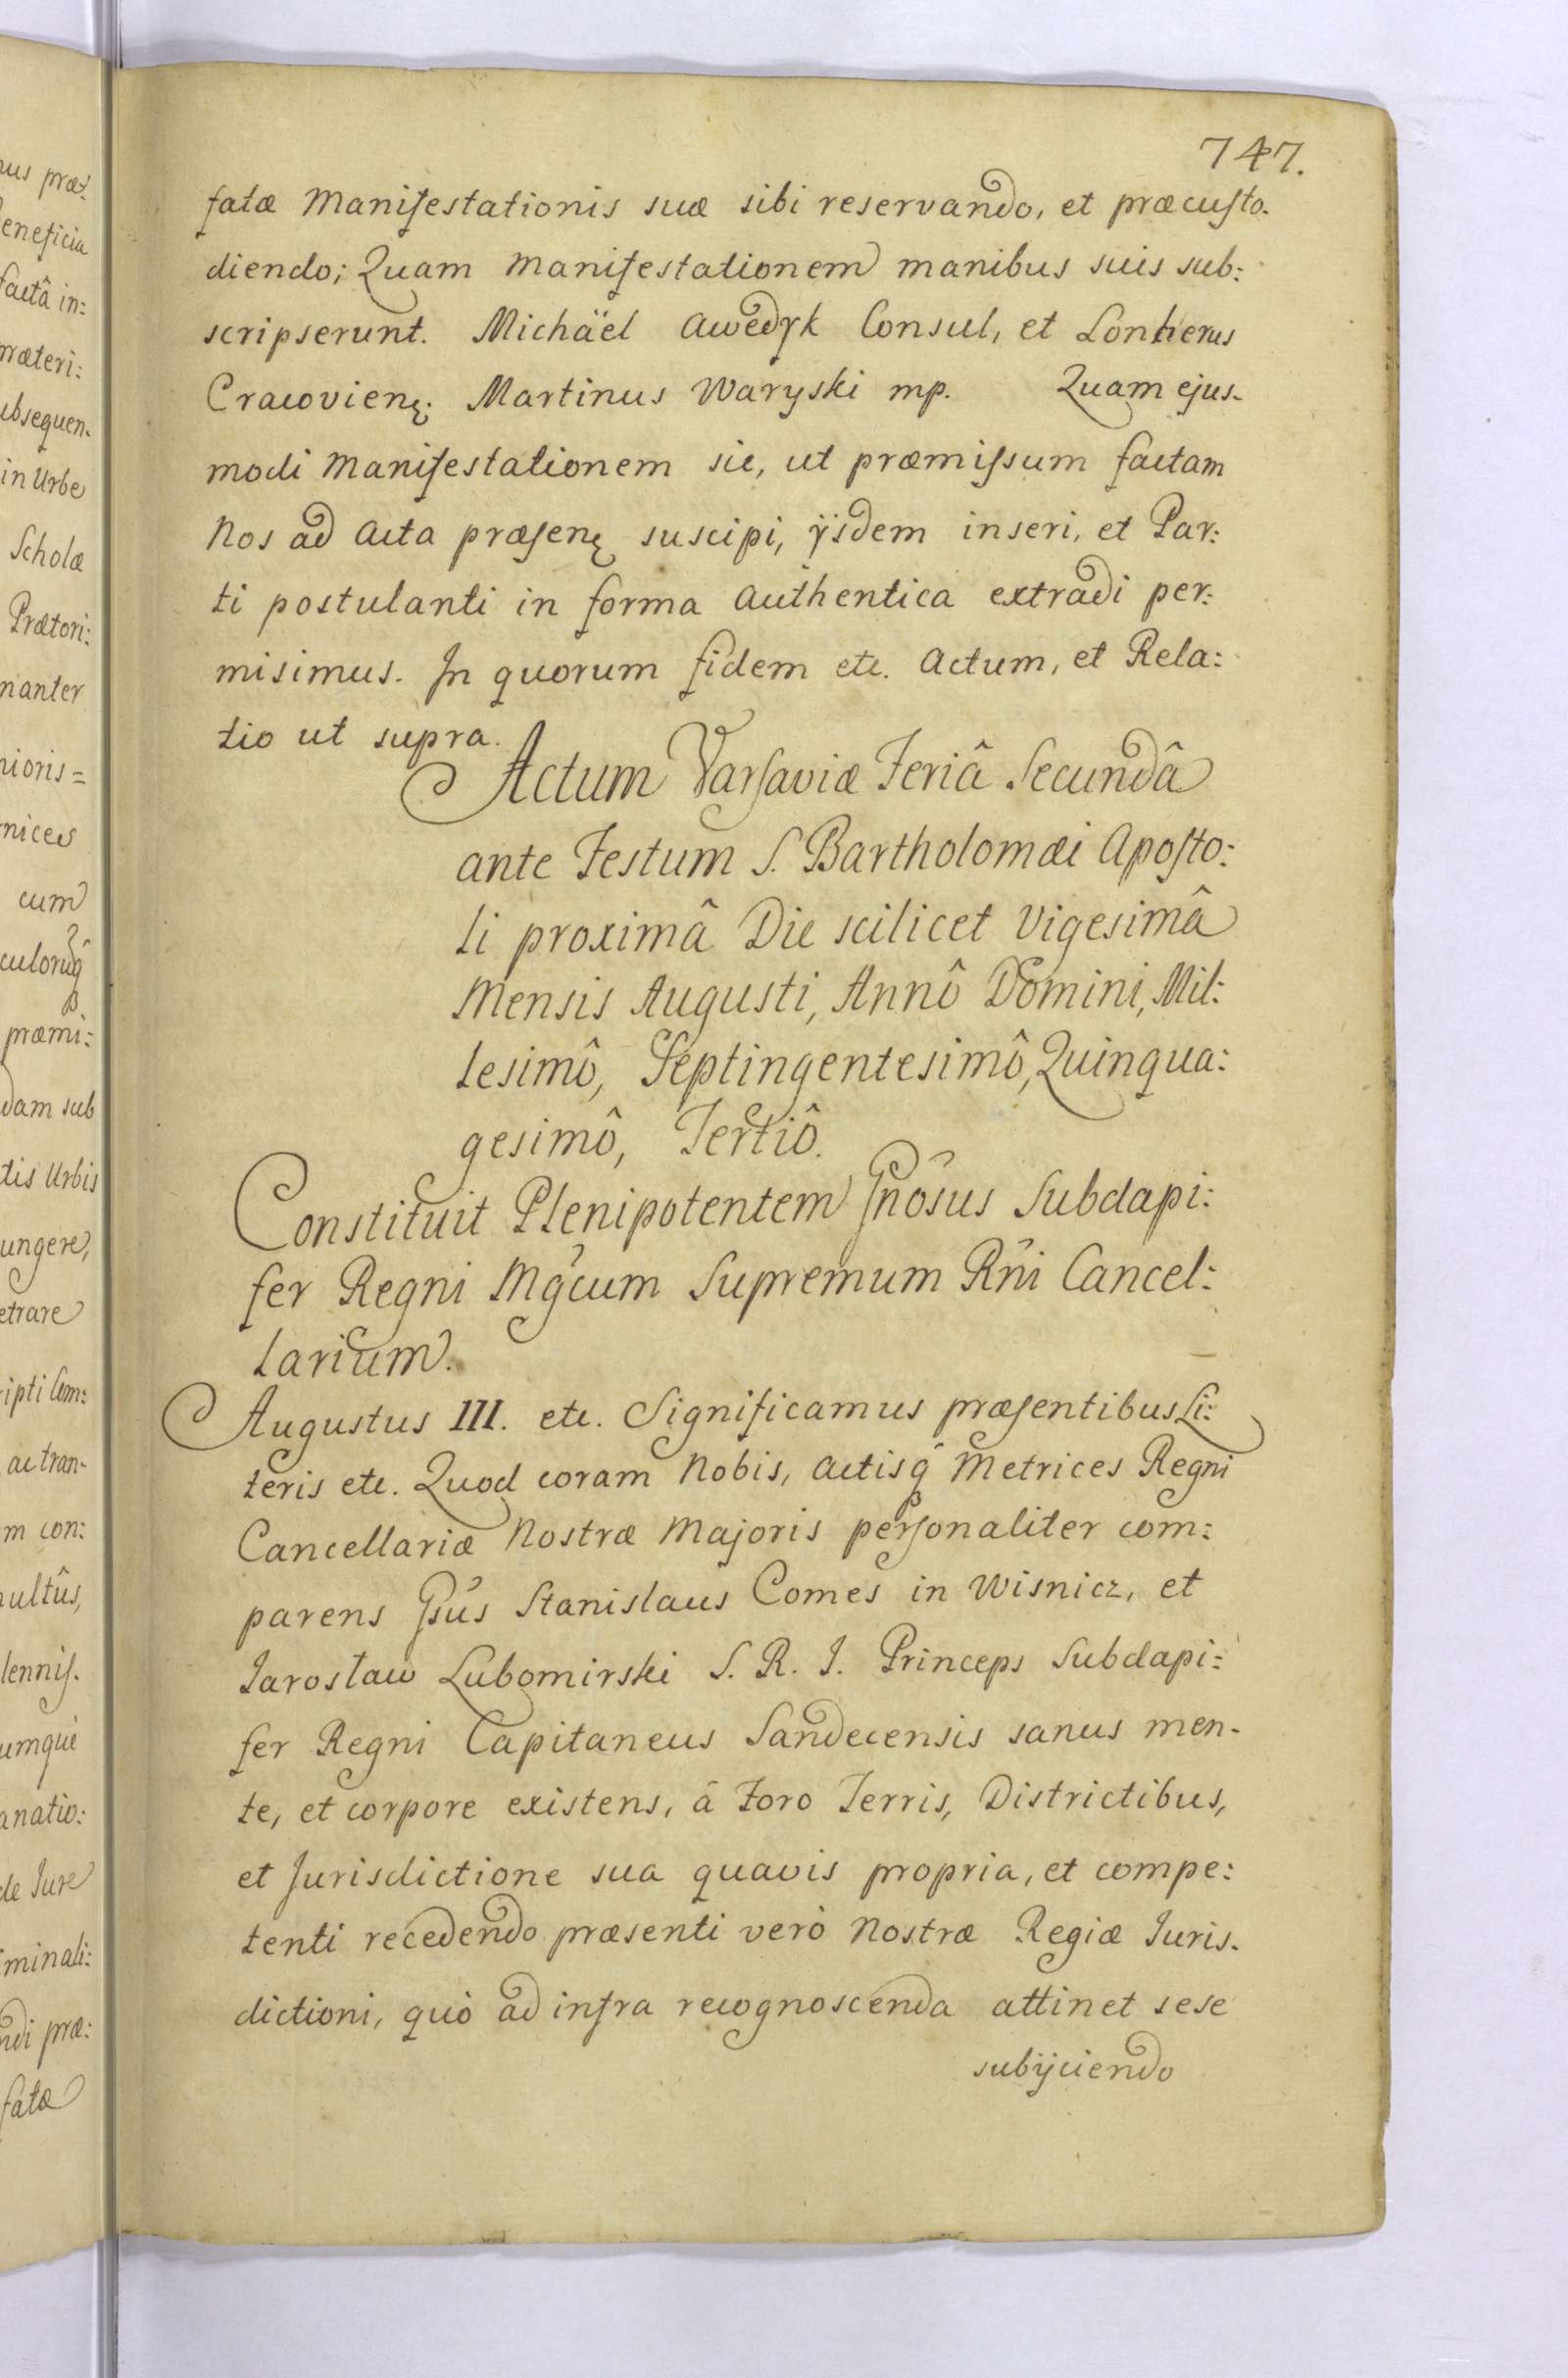 747.
fatæ Manifestationis suæ sibi reservando, et præcusto-
diendo; Quam Manifestationem manibus suis sub:
scripserunt. Michäel Awedyk Consul, et Lonherus
Cracovienę. Martinus Waryski mp. Quam ejus-
modi Manifestationem sic, ut præmissum factam
Nos ad Acta præsenę suscipi, ÿsdem inseri, et Par:
ti postulanti in forma Authentica extradi per:
misimus. In quorum fidem etc. Actum, et Rela:
tio ut supra.
Actum Varsaviæ Feriâ Secundâ
ante Festum S. Bartholomæi Aposto:
li proximâ Die scilicet Vigesimâ
Mensis Augusti, Annô Domini, Mil:
lesimô, Septingentesimô, Quinqua:
gesimô, Tertiô.
Constituit Plenipotentem Gnosus Subdapi:
fer Regni Mgcum Supremum Rni Cancel:
larium.
Augustus III. etc. Significamus præsentibus Li:
teris etc. Quod coram Nobis, Actisq̂ Metrices Regni
Cancellariæ Nostræ Majoris personaliter com:
parens Gsus Stanislaus Comes in Wisnicz, et
Jarosław Lubomirski S. R. I. Princeps Subdapi:
fer Regni Capitaneus Sandecensis sanus men-
te, et corpore existens, â Foro Terris, Districtibus,
et Jurisdictione sua quavis propria, et compe:
tenti recedendo præsenti verò Nostræ Regiæ Juris-
dictioni, quò ad infra recognoscenda attinet sese
subijciendo
us præ:
eneficia
factâ in:
ræteri:
ubsequen-
in Urbe
Scholæ
Prætori:
nanter
nioris=
nices
cum
præmi:
dam sub
tis Urbis
ungere,
etrare
ipti Com:
ac tran-
m con:
ultûs,
lennis.
umque
anatio:
de Jure
minali:
ndi præ:
fatæ